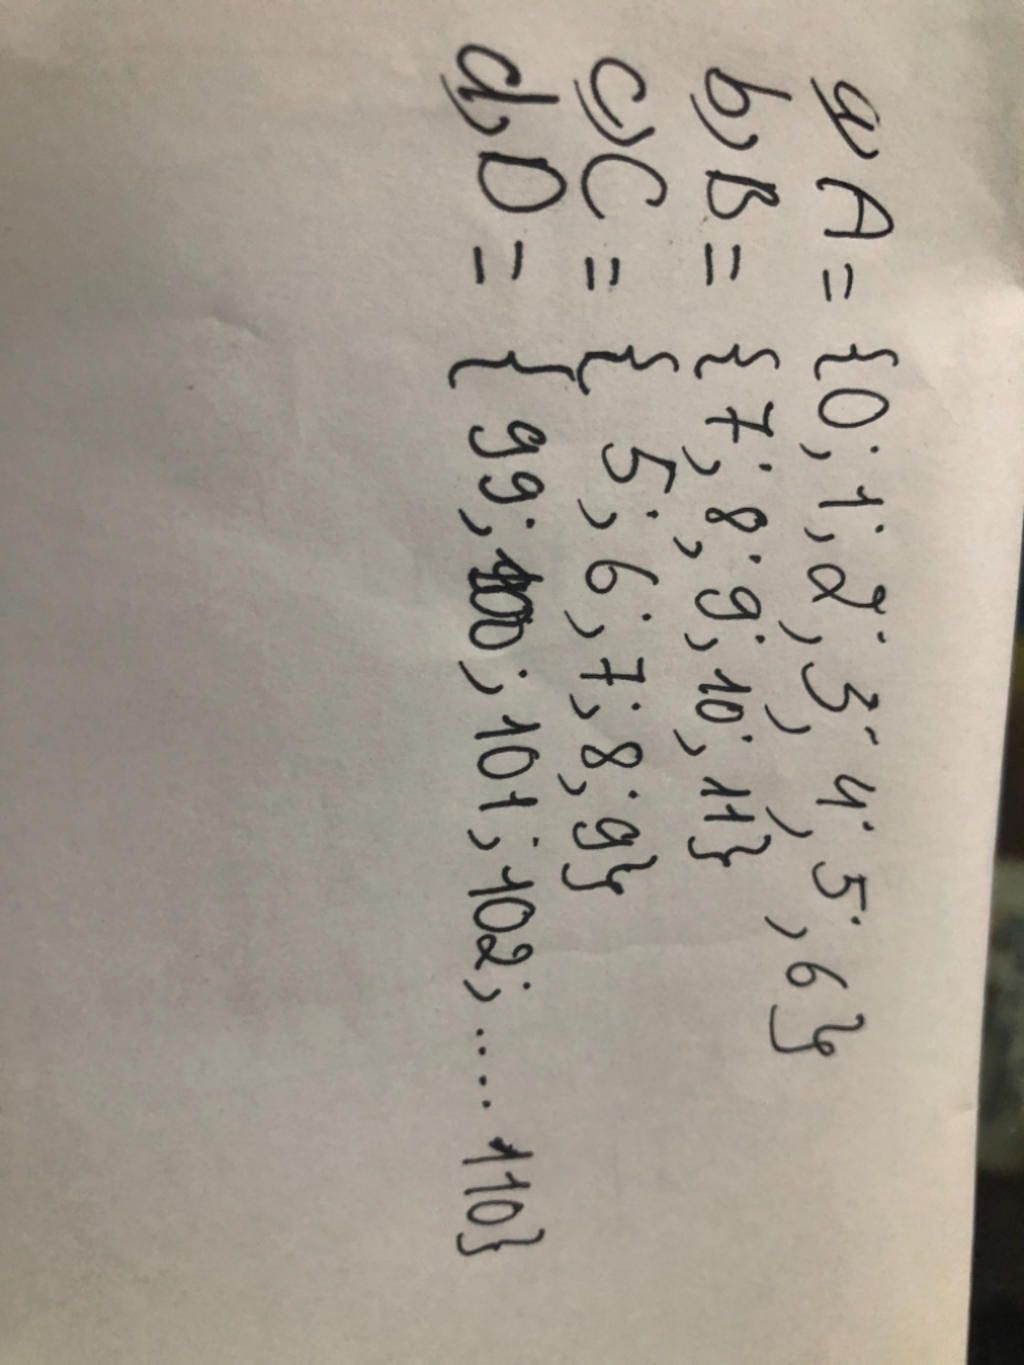 a, A = {0; 1; 2; 3; 4; 5; 6}
b, B = {7; 8; 9; 10; 11}
c, C = { 5; 6; 7; 8; 9}
d, D = { 99; 100; 101; 102; .... 110}